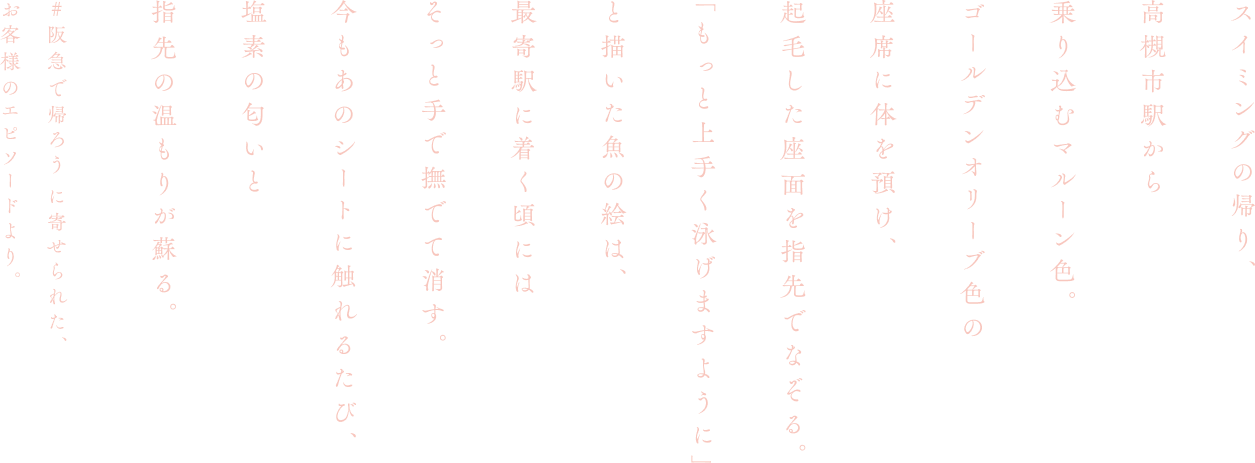 スイミングの帰り、
高槻市駅から
乗り込むマルーン色。
ゴールデンオリーブ色の
座席に体を預け、
起毛した座面を指先でなぞる。
「もっと上手く泳げますように」
と描いた魚の絵は、
最寄駅に着く頃には
そっと手で撫でて消す。
今もあのシートに触れるたび、
塩素の匂いと
指先の温もりが蘇る。
#阪急で帰ろう に寄せられた、
お客様のエピソードより。